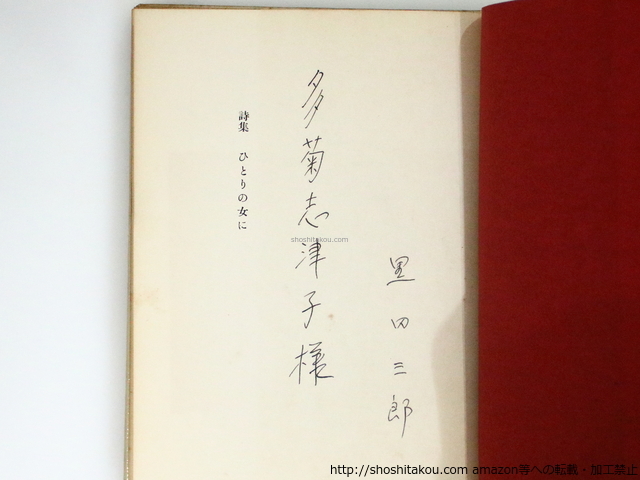 黒田三郎
多菊志津子様
詩集 ひとりの女に
shoshitakou.com
http://shoshitakou.com amazon等への転載・加工禁止